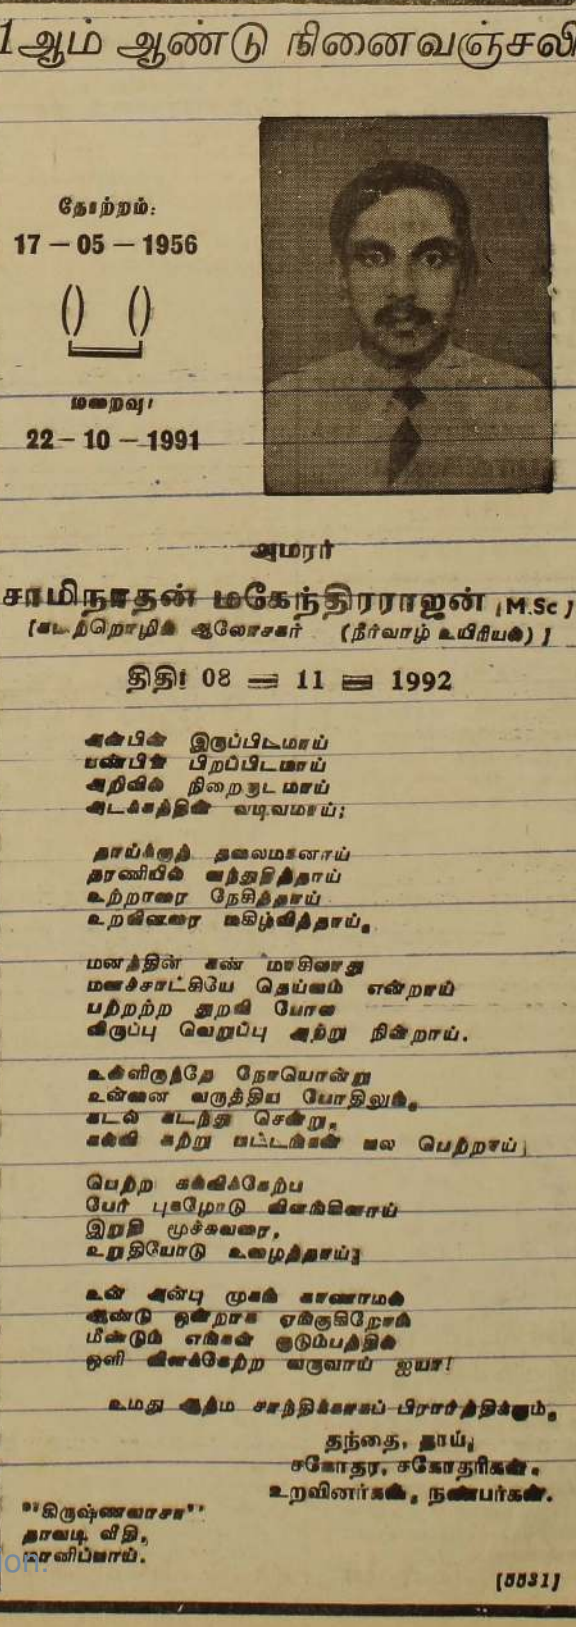 1ஆம் ஆண்டு நினைவஞ்சலி
தோற்றம்:
17 – 05 – 1956
மறைவு:
22 – 10 – 1991
அமரர்
சாமிநாதன் மகேந்திரராஜன் [M.Sc]
[கடற்றொழில் ஆலோசகர் (நீர்வாழ் உயிரியல்)]
திதி: 08 = 11 = 1992
அன்பின் இருப்பிடமாய்
பண்பின் பிறப்பிடமாய்
அறிவின் நிறைகுடமாய்
அடக்கத்தின் வடிவமாய்;
தாய்க்குத் தலைமகனாய்
தரணியில் வந்துதித்தாய்
உற்றாரை நேசித்தாய்
உறவினரை மகிழ்வித்தாய்.
மனத்தின் கண் மாசிலாது
மனச்சாட்சியே தெய்வம் என்றாய்
பற்றற்ற துறவி போல
விருப்பு வெறுப்பு அற்று நின்றாய்.
உள்ளிருந்தே நோயொன்று
உன்னை வருத்திய போதிலும்,
கடல் கடந்து சென்று,
கல்வி கற்று பட்டங்கள் பல பெற்றாய்;
பெற்ற கல்விக்கேற்ப
பேர் புகழோடு விளங்கினாய்
இறுதி மூச்சுவரை,
உறுதியோடு உழைத்தாய்;
உன் அன்பு முகம் காணாமல்
ஆண்டு ஒன்றாக ஏங்குகிறோம்
மீண்டும் எங்கள் குடும்பத்தில்
ஒளி விளக்கேற்ற வருவாய் ஐயா!
உமது ஆத்ம சாந்திக்காகப் பிரார்த்திக்கும்,
தந்தை, தாய்,
சகோதர, சகோதரிகள்,
உறவினர்கள், நண்பர்கள்.
"கிருஷ்ணவாசா"
தாவடி வீதி,
மானிப்பாய்.
[5531]